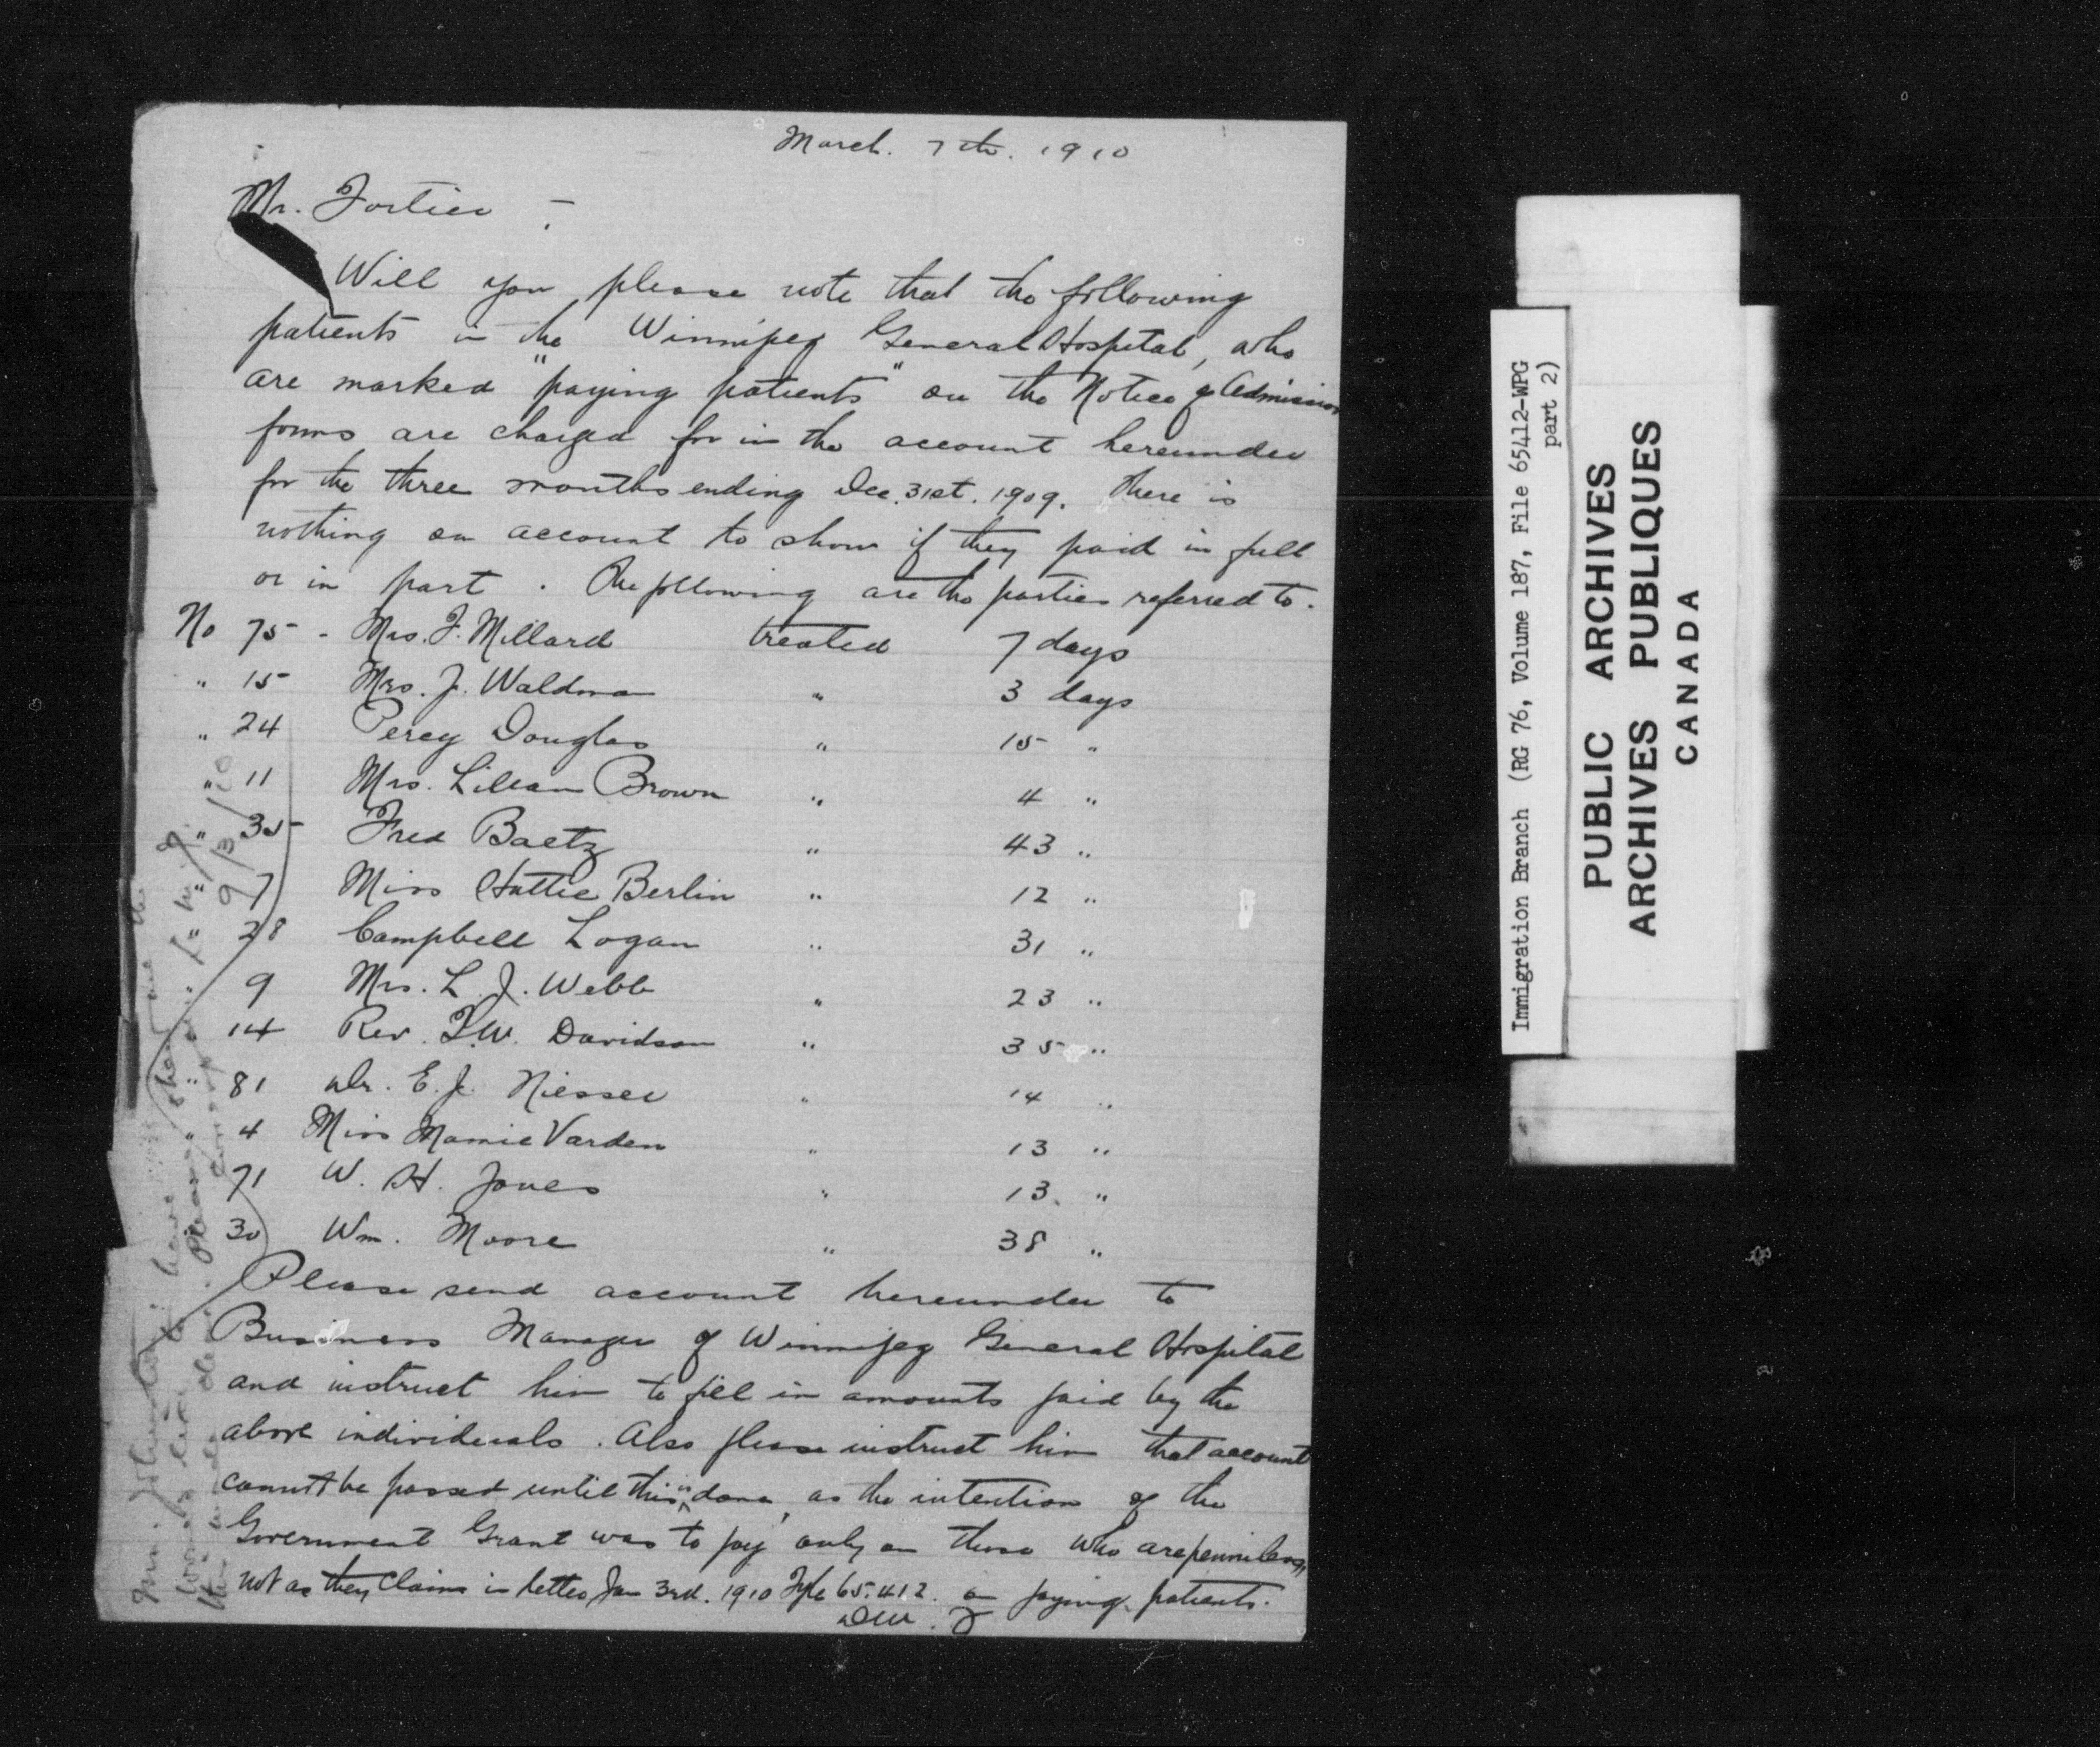 March. 7th. 1910
Mr. Fortier -
Will you please note that the following
patients in the Winnipeg General Hospital, who
are marked "paying patients" on the Notice of Admission
forms are charged for in the account hereunder
for the three months ending Dec. 31st. 1909. There is
nothing on account to show if they paid in full
or in part. The following are the parties referred to.
No 75 - Mrs. F. Millard treated 7 days
" 15 Mrs. J. Waldman " 3 days
" 24 Percy Douglas " 15 "
" 11 Mrs. Lillian Brown " 4 "
" 35 Fred Baetz " 43 "
" 7 Miss Hattie Berlin " 12 "
" 28 Campbell Logan " 31 "
" 9 Mrs. L. J. Webb " 23 "
14 Rev. F.W. Davidson " 35 "
" 81 Dr. E. J. Niesser " 14 "
" 4 Miss Mamie Varden " 13 "
71 W. H. Jones " 13 "
30 Wm. Moore " 38 "
Please send account hereunder to
Business Manager of Winnipeg General Hospital
and instruct him to fill in amounts paid by the
above individuals. Also please instruct him that account
cannot be passed until this is done, as the intention of the
Government Grant was to pay only on those who are penniless,
not as they claim in letter Jan 3rd. 1910 Fyle 65.412. on paying patients.
9/3/10
Immigration Branch (RG 76, Volume 187, File 65412-WPG
part 2)
PUBLIC ARCHIVES
ARCHIVES PUBLIQUES
CANADA